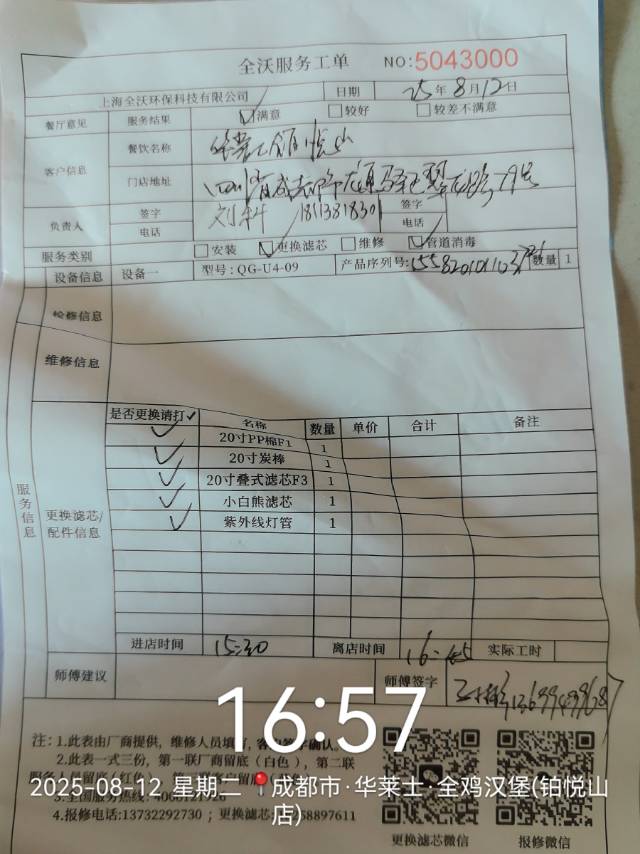 全沃服务工单 NO:5043000
上海全沃环保科技有限公司 日期 25年8月12日
餐厅意见 服务结果 ☑满意 □较好 □较差不满意
客户信息 餐饮名称
门店地址
负责人 签字 签字
电话 电话
服务类别 □安装 ☑更换滤芯 □维修 ☑管道消毒
设备信息 设备一 型号:QG-U4-09 产品序列号: 数量 1
检修信息
维修信息
服务信息
更换滤芯/配件信息
是否更换请打✓ 名称 数量 单价 合计 备注
✓ 20寸PP棉F1 1
✓ 20寸炭棒 1
✓ 20寸叠式滤芯F3 1
✓ 小白熊滤芯 1
✓ 紫外线灯管 1
进店时间 15:30 离店时间 16:45 实际工时
师傅建议 师傅签字
16:57
注:1.此表由厂商提供,维修人员填写,客户签字确认.
2.此表一式三份,第一联厂商留底(白色),第二联
2025-08-12 星期二 成都市·华莱士·全鸡汉堡(铂悦山店)
3.全国服务热线:
4.报修电话:13732292730;更换滤芯
更换滤芯微信 报修微信